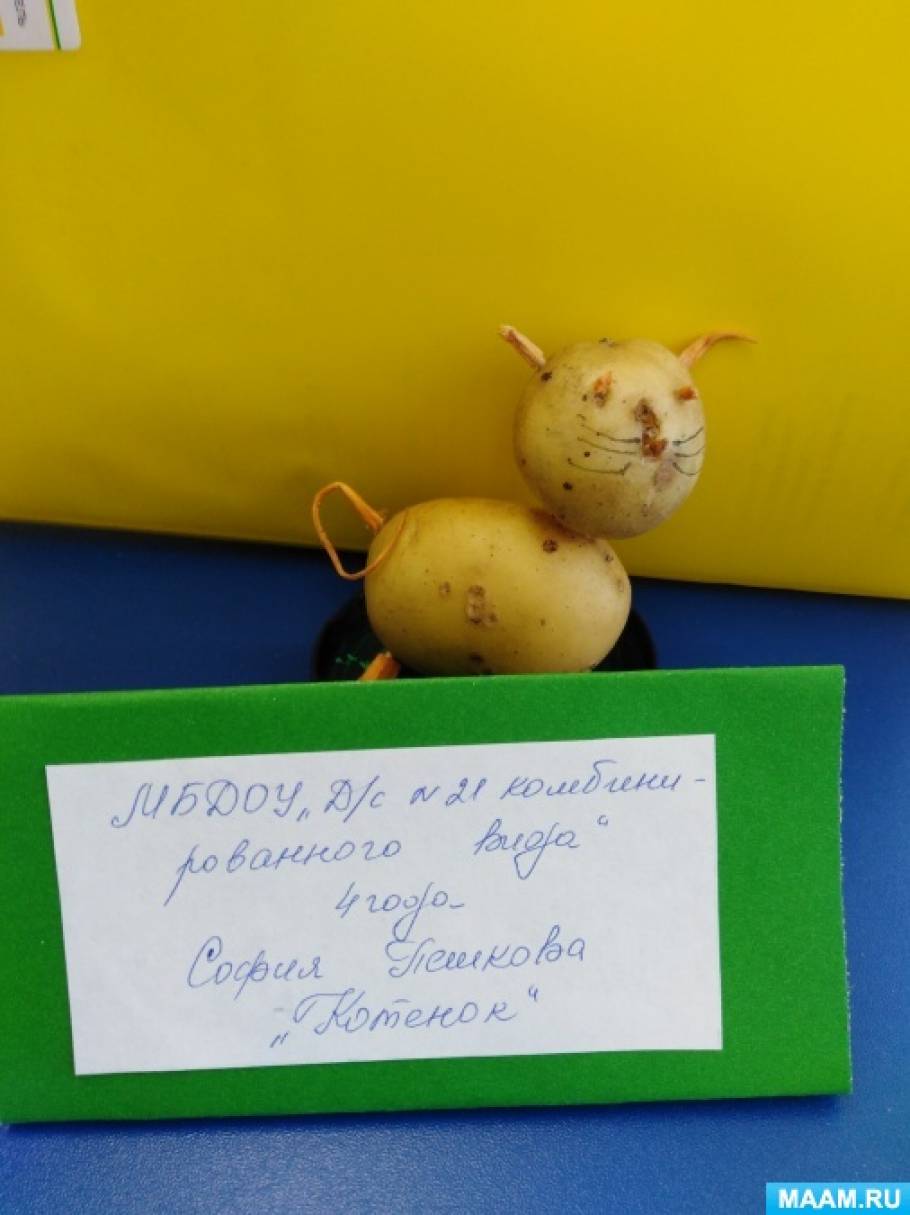 МБДОУ „Д/с №21 комбини-
рованного вида“
4 года
София Пешкова
„Котенок“
MAAM.RU